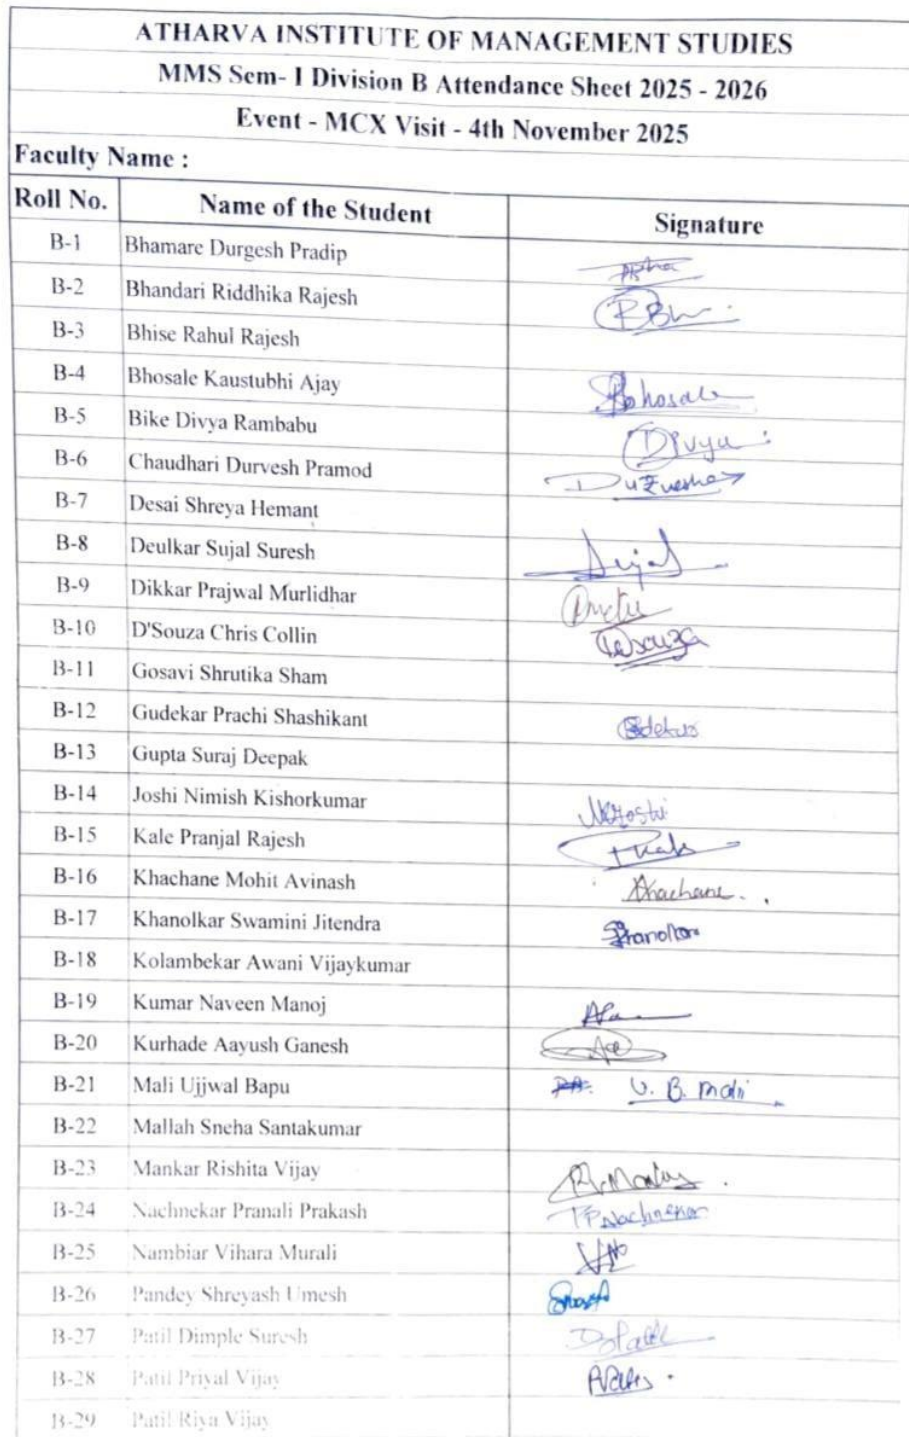 ATHARVA INSTITUTE OF MANAGEMENT STUDIES
MMS Sem- I Division B Attendance Sheet 2025 - 2026
Event - MCX Visit - 4th November 2025
Faculty Name :
Roll No. Name of the Student Signature
B-1 Bhamare Durgesh Pradip
B-2 Bhandari Riddhika Rajesh
B-3 Bhise Rahul Rajesh
B-4 Bhosale Kaustubhi Ajay Bhosale
B-5 Bike Divya Rambabu Divya
B-6 Chaudhari Durvesh Pramod
B-7 Desai Shreya Hemant
B-8 Deulkar Sujal Suresh Sujal
B-9 Dikkar Prajwal Murlidhar
B-10 D'Souza Chris Collin
B-11 Gosavi Shrutika Sham
B-12 Gudekar Prachi Shashikant
B-13 Gupta Suraj Deepak
B-14 Joshi Nimish Kishorkumar
B-15 Kale Pranjal Rajesh
B-16 Khachane Mohit Avinash Khachane
B-17 Khanolkar Swamini Jitendra
B-18 Kolambekar Awani Vijaykumar
B-19 Kumar Naveen Manoj
B-20 Kurhade Aayush Ganesh
B-21 Mali Ujjwal Bapu U. B. Mali
B-22 Mallah Sneha Santakumar
B-23 Mankar Rishita Vijay
B-24 Nachnekar Pranali Prakash PPNachnekar
B-25 Nambiar Vihara Murali
B-26 Pandey Shreyash Umesh
B-27 Patil Dimple Suresh
B-28 Patil Priyal Vijay
B-29 Patil Riya Vijay